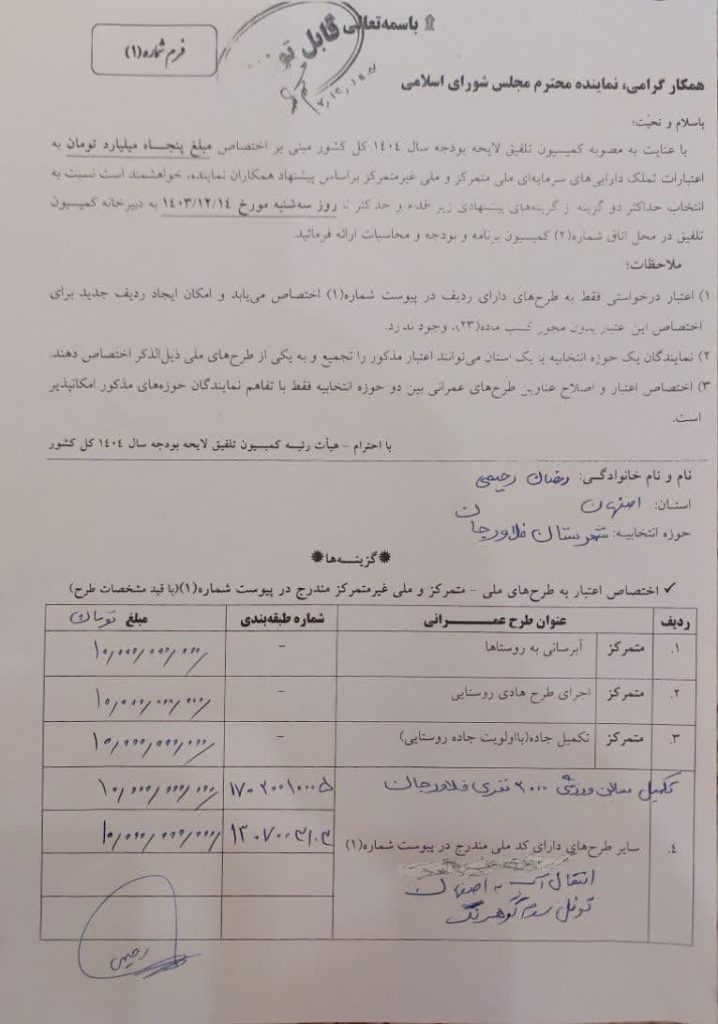 باسمه‌تعالی
فرم شماره(۱)
قابل
همکار گرامی، نماینده محترم مجلس شورای اسلامی
باسلام و تحیّت؛
با عنایت به مصوبه کمیسیون تلفیق لایحه بودجه سال ۱۴۰۴ کل کشور مبنی بر اختصاص مبلغ پنجاه میلیارد تومان به
اعتبارات تملک دارایی‌های سرمایه‌ای ملی متمرکز و ملی غیرمتمرکز براساس پیشنهاد همکاران نماینده، خواهشمند است نسبت به
انتخاب حداکثر دو گزینه از گزینه‌های پیشنهادی زیر اقدام و حداکثر تا روز سه‌شنبه مورخ ۱۴۰۳/۱۲/۱۴ به دبیرخانه کمیسیون
تلفیق در محل اتاق شماره(۲) کمیسیون برنامه و بودجه و محاسبات ارائه فرمائید.
ملاحظات؛
۱) اعتبار درخواستی فقط به طرح‌های دارای ردیف در پیوست شماره(۱) اختصاص می‌یابد و امکان ایجاد ردیف جدید برای
اختصاص این اعتبار بدون مجوز کسب ماده(۲۳)، وجود ندارد.
۲) نمایندگان یک حوزه انتخابیه یا یک استان می‌توانند اعتبار مذکور را تجمیع و به یکی از طرح‌های ملی ذیل‌الذکر اختصاص دهند.
۳) اختصاص اعتبار و اصلاح عناوین طرح‌های عمرانی بین دو حوزه انتخابیه فقط با تفاهم نمایندگان حوزه‌های مذکور امکانپذیر
است.
با احترام – هیأت رئیسه کمیسیون تلفیق لایحه بودجه سال ۱۴۰۴ کل کشور
نام و نام خانوادگی: رمضان رحیمی
استان: اصفهان
حوزه انتخابیه: شهرستان فلاورجان
✹گزینه‌ها✹
✓ اختصاص اعتبار به طرح‌های ملی – متمرکز و ملی غیرمتمرکز مندرج در پیوست شماره(۱)(با قید مشخصات طرح)
ردیف عنوان طرح عمـــرانی شماره طبقه‌بندی مبلغ تومان
۱. متمرکز آبرسانی به روستاها – ۱۰,۰۰۰,۰۰۰,۰۰۰
۲. متمرکز اجرای طرح هادی روستایی – ۱۰,۰۰۰,۰۰۰,۰۰۰
۳ متمرکز تکمیل جاده(بااولویت جاده روستایی) – ۱۰,۰۰۰,۰۰۰,۰۰۰
تکمیل سالن ورزشی ۳۰۰۰ نفری فلاورجان ۱۰,۰۰۰,۰۰۰,۰۰۰
۴. سایر طرح‌های دارای کد ملی مندرج در پیوست شماره(۱) ۱۰,۰۰۰,۰۰۰,۰۰۰
انتقال آب به اصفهان
تونل سوم کوهرنگ
رحیمی